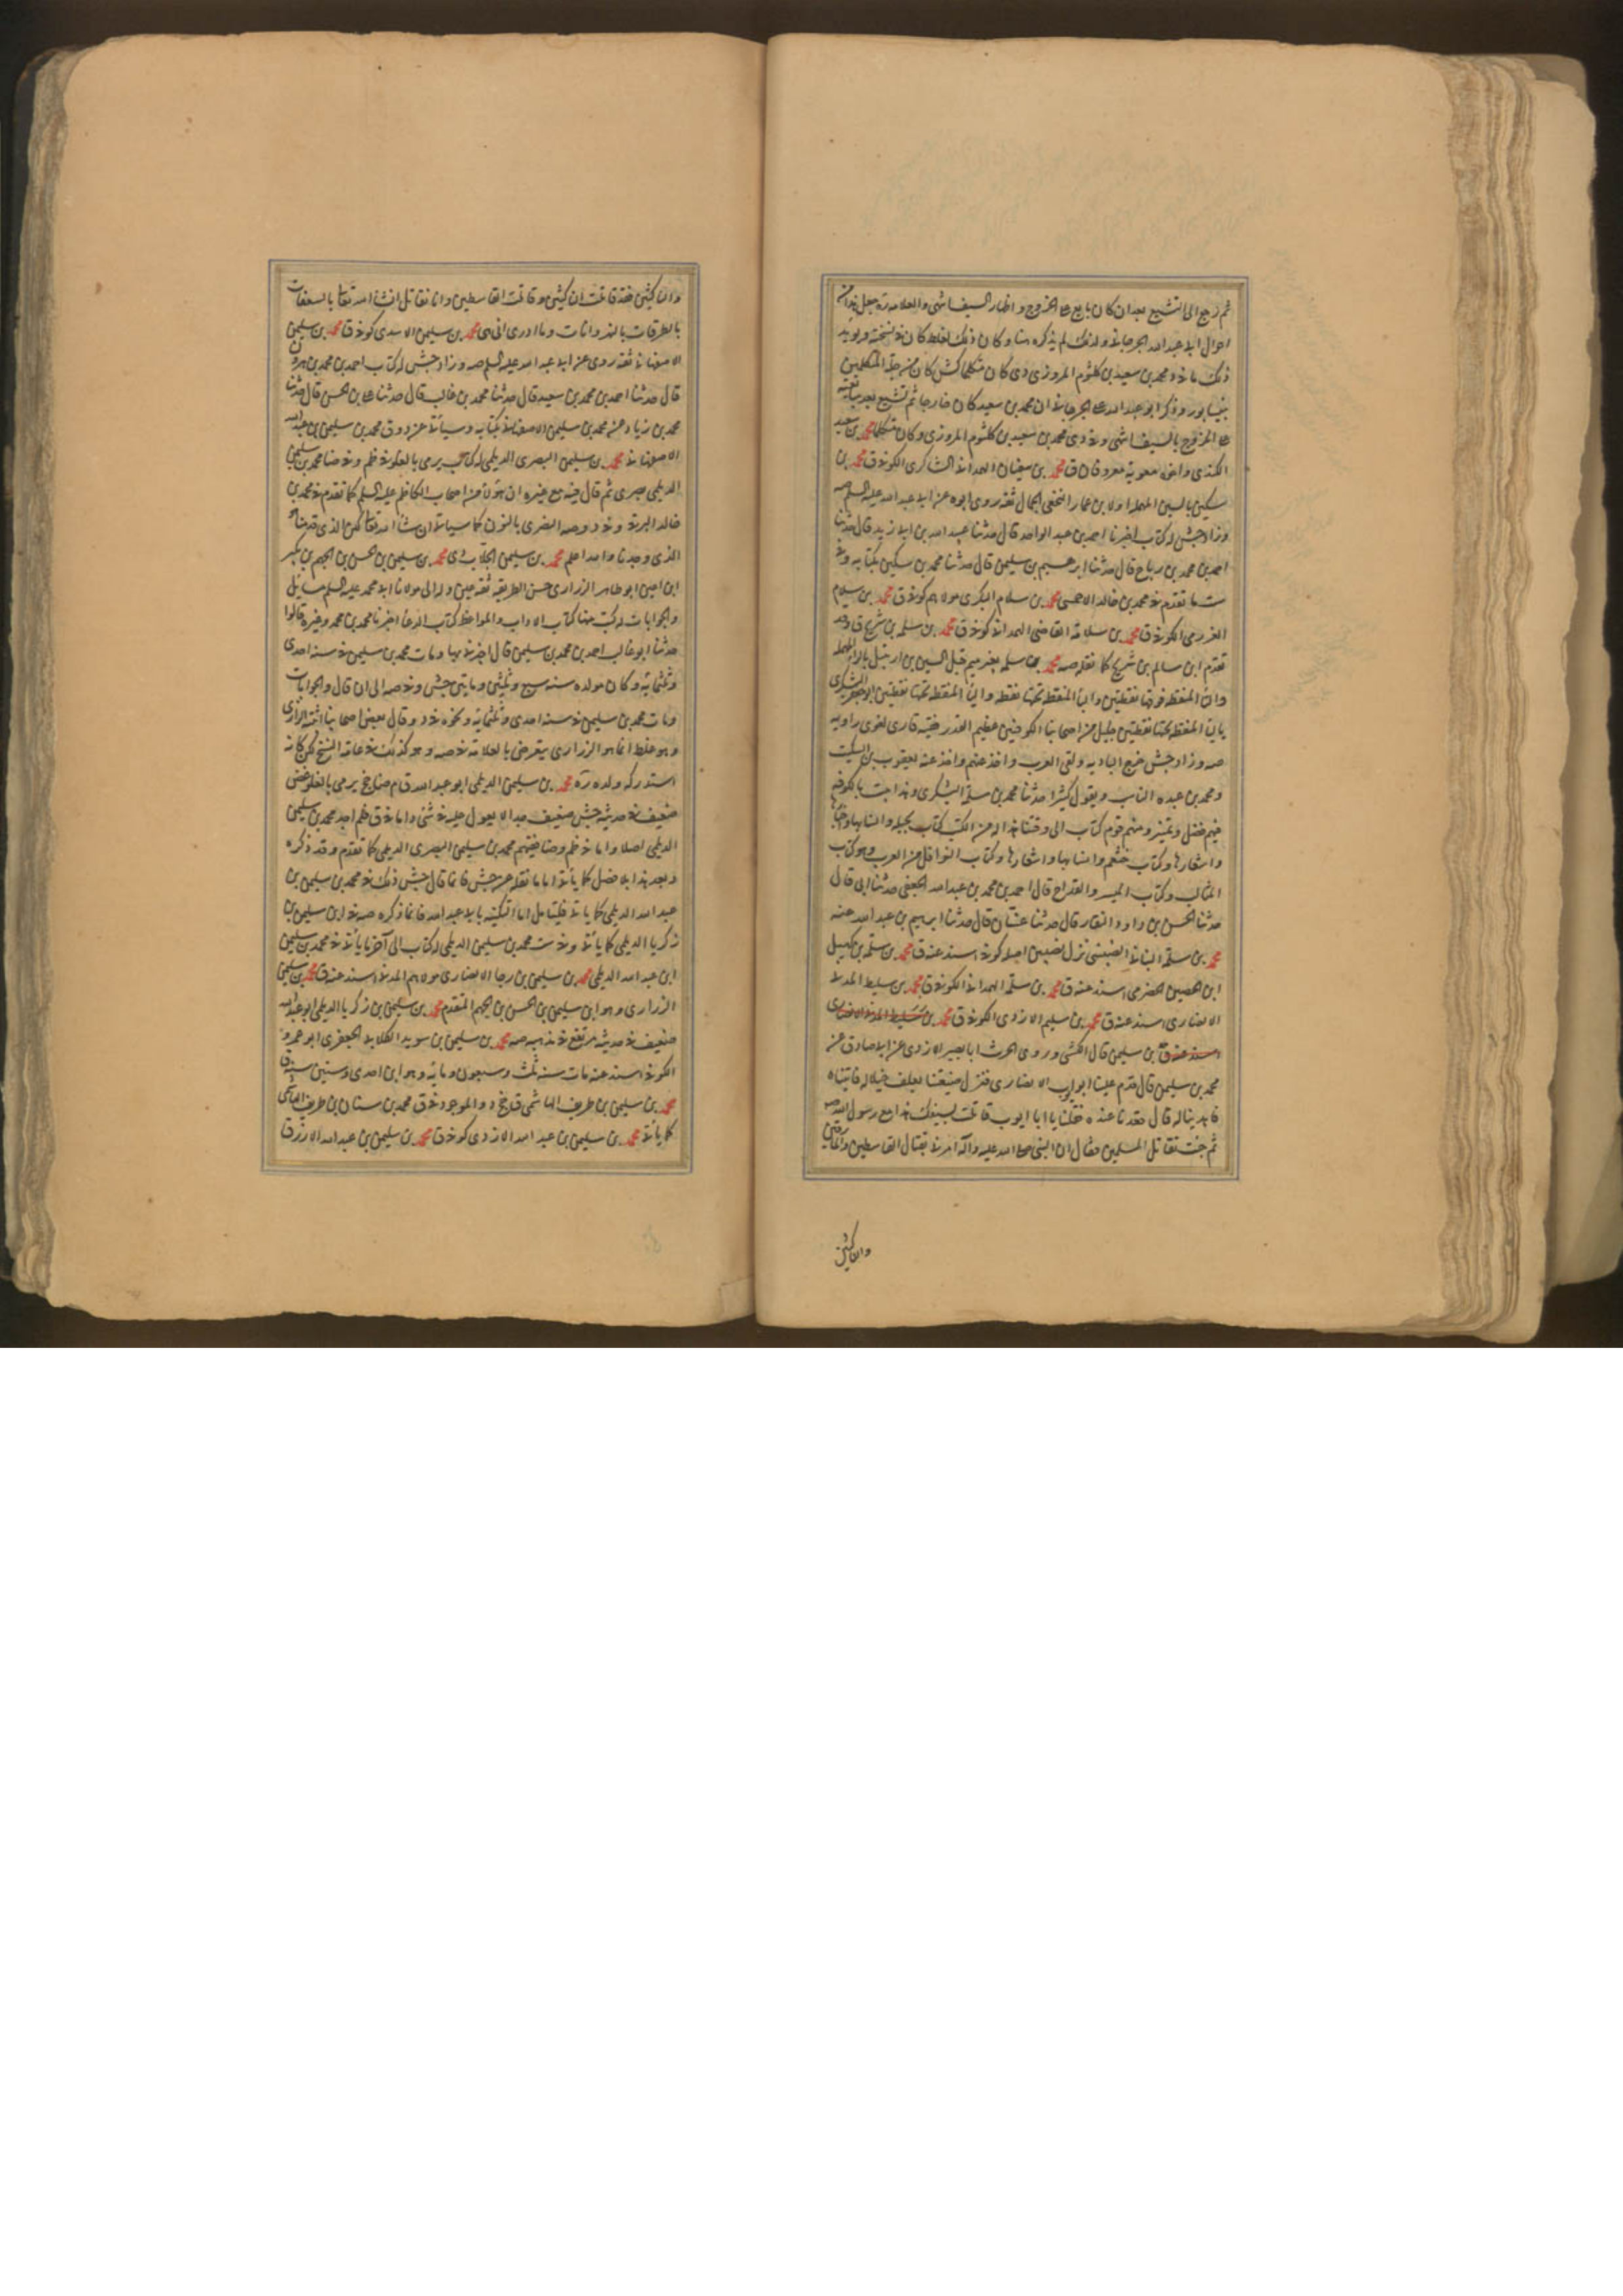 ثم رجع الى التشيع بعد ان كان بايع على الخروج و اظهار السيف اشى والعلامة ره جعل هذا من
احوال ابى عبد الله الجرجانى ولذلك لم يذكره هنا و كان ذلك لغلط كان فى نسخته ويؤيد
ذلك ما فى د محمد بن سعيد بن كلثوم المروزى دى كان متكلما كش كان من جلة المتكلمين
بنيسابور وذكر ابو عبد الله الجرجانى ان محمد بن سعيد كان خارجيا ثم تشيع بعد بيعته
على الخروج بالسيف اشى وفى دى محمد بن سعيد بن كلثوم المروزى وكان متكلما محمد بن سعيد
الكندى واخوه معوية معروفان ق محمد بن سفيان الهمدانى الشاكرى الكوفى ق محمد بن
سكين بالسين المهملة اولا بن عمار النخعى الجمال ثقة روى ابوه عن ابى عبد الله عليه السلم صه
وزاد جش له كتاب اخبرنا احمد بن عبد الواحد قال حدثنا عبيد الله بن ابى زيد قال حدثنا
احمد بن محمد بن رباح قال حدثنا ابرهيم بن سليمن قال حدثنا محمد بن سكين بكتابه وفى
ست ما تقدم فى محمد بن خالد الاحمسى محمد بن سلام البكرى مولاهم كوفى ق محمد بن سلام
العزرمى الكوفى ق محمد بن سلامة القاضى الهمدانى كوفى ق محمد بن سلمة بن شريح ق وقد
تقدم ابن سالم بن شريح كما نقله صه محمد بن سلمة بغير ميم قبل السين بن ارتبيل بالراء المهملة
والتاء المنقطة فوقها نقطتين والباء المنقطة تحتها نقطة والياء المنقطة تحتها نقطتين ابو جعفر اليشكرى
بالياء المنقطة تحتها نقطتين جليل من اصحابنا الكوفيين عظيم القدر فقيه قارى لغوى راويه
صه وزاد جش خرج البادية ولقى العرب واخذ عنهم واخذ عنه يعقوب بن السكيت
ومحمد بن عبده الناب ويقول كثيرا حدثنا محمد بن سلمة اليشكرى وهذا بيت بالكوفة
فيهم فضل وتميز ومنهم قوم كتاب الى وقتنا هذا له من الكتب كتاب بجيلة وانسابها واخبارها
واشعارها وكتاب خثعم وانسابها واشعارها وكتاب النوافل من العرب وهو كتاب
المثالب وكتاب الميسر والقداح قال احمد بن محمد بن عبد الله الجعفى حدثنا ابى قال
حدثنا الحسن بن داود النقار قال حدثنا عسان قال حدثنا ابرهيم بن عبد الله عنه
محمد بن سلمة البنانى نزل نصيبين اصله كوفى اسند عنه ق محمد بن سلمة بن كهيل
ابن الحصين الحضرمى اسند عنه ق محمد بن سلمة الهمدانى الكوفى ق محمد بن سليط المدنى
الانصارى اسند عنه ق محمد بن سليم الازدى الكوفى ق محمد بن سليط المدنى الانصارى
اسند عنه ق بن سليمن قال الكشى وروى الحرث ابا بصير الازدى عن ابى صادق عن
محمد بن سليمن قال قدم علينا ابو ايوب الانصارى فنزل ضيعتنا يعلف خيلا له فاتيناه
فاهدينا له قال فقعدنا عنده فقلنا يا ابا ايوب قاتلت بسيفك هذا مع رسول الله صه
ثم جئت تقاتل المسلمين فقال ان النبى صلى الله عليه وآله امرنى بقتال القاسطين والمارقين
والناكثين
والناكثين فقد قاتلت الناكثين وقاتلت القاسطين وانا نقاتل انشا الله تعالى بالسعفات
بالطرقات بالنهروانات وما ادرى انى هى محمد بن سليمن الاسدى كوفى ق محمد بن سليمن
الاصفهانى ثقة روى عن ابى عبد الله عليه السلم صه وزاد جش له كتاب احمد بن محمد بن هرون
قال حدثنا احمد بن محمد بن سعيد قال حدثنا محمد بن غالب قال حدثنا على بن الحسن قال حدثنا
محمد بن زياد عن محمد بن سليمن الاصفهانى بكتابه وسيأتى عن د و ق محمد بن سليمن بن عبد الله
الاصفهانى محمد بن سليمن البصرى الديلمى له كتاب يرمى بالغلو فى ظم وفى ضا محمد بن سليمن
الديلمى بصرى ثم قال فيه مع غيره ان هؤلاء من اصحاب الكاظم عليه السلم كما تقدم فى محمد بن
خالد البرقى وفى د وصه النصرى بالنون كما سياتى ان شاء الله تعالى لكن الذى قدمناه
الذى وجدنا والله اعلم محمد بن سليمن الجلاب دى محمد بن سليمن بن الحسن بن الجهم بن بكير
ابن اعين ابو طاهر الزرارى حسن الطريقة ثقة عين وله الى مولانا ابى محمد عليه السلم مسائل
والجوابات له كتب منها كتاب الاداب والمواعظ كتاب الدعاء اخبرنا محمد بن محمد وغيره قالوا
حدثنا ابو غالب احمد بن محمد بن سليمن قال اخبرنى بها ومات محمد بن سليمن فى سنة احدى
وثلثمائة وكان مولده سنة سبع وثلثين ومايتين جش وفى صه الى ان قال والجوابات
ومات محمد بن سليمن فى سنة احدى وثلثمائة ونحوه فى د وقال بعض اصحابنا انه الرازى
وهو غلط انما هو الزرارى يتعرض بالعلامة فى صه وهو كذلك فى عامة النسخ لكن كانه
استدركه ولده ره محمد بن سليمن الديلمى ابو عبد الله ق م ضا جخ يرمى بالغلو غض
ضعيف فى حديثه جش ضعيف جدا لا يعول عليه فى شى واما فى ق فلم اجد محمد بن سليمن
الديلمى اصلا واما فى ظم وضا ففيهم محمد بن سليمن البصرى الديلمى كما تقدم وقد ذكره
وبعد هذا بلا فصل كما يأتى اما ما نقله عن جش فانما قال جش ذلك فى محمد بن سليمن بن
عبد الله الديلمى كما ياتى فليتامل اما التكنية بابى عبد الله فانما ذكره صه فى ابن سليمن بن
زكريا الديلمى كما يأتى وفى ست محمد بن سليمن الديلمى له كتاب الى آخر ما يأتى فى محمد بن سليمن
ابن عبد الله الديلمى محمد بن سليمن بن رجا الانصارى مولاهم المدنى اسند عنه ق محمد بن سليمن
الزرارى وهو ابن سليمن بن الحسن بن الجهم المتقدم محمد بن سليمن بن زكريا الديلمى ابو عبد الله
ضعيف فى حديثه مرتفع فى مذهبه صه محمد بن سليمن بن سويد الكلابى الجعفرى ابو عمرو
الكوفى اسند عنه مات سنة ثلث وسبعون ومائة وهو ابن احدى وستين سنة ق
محمد بن سليمن بن طريف الهاشمى ق جخ د والموجود فى ق محمد بن سنان بن طريف الهاشمى
كما يأتى محمد بن سليمن بن عبد الله الازدى كوفى ق محمد بن سليمن بن عبد الله الازرق